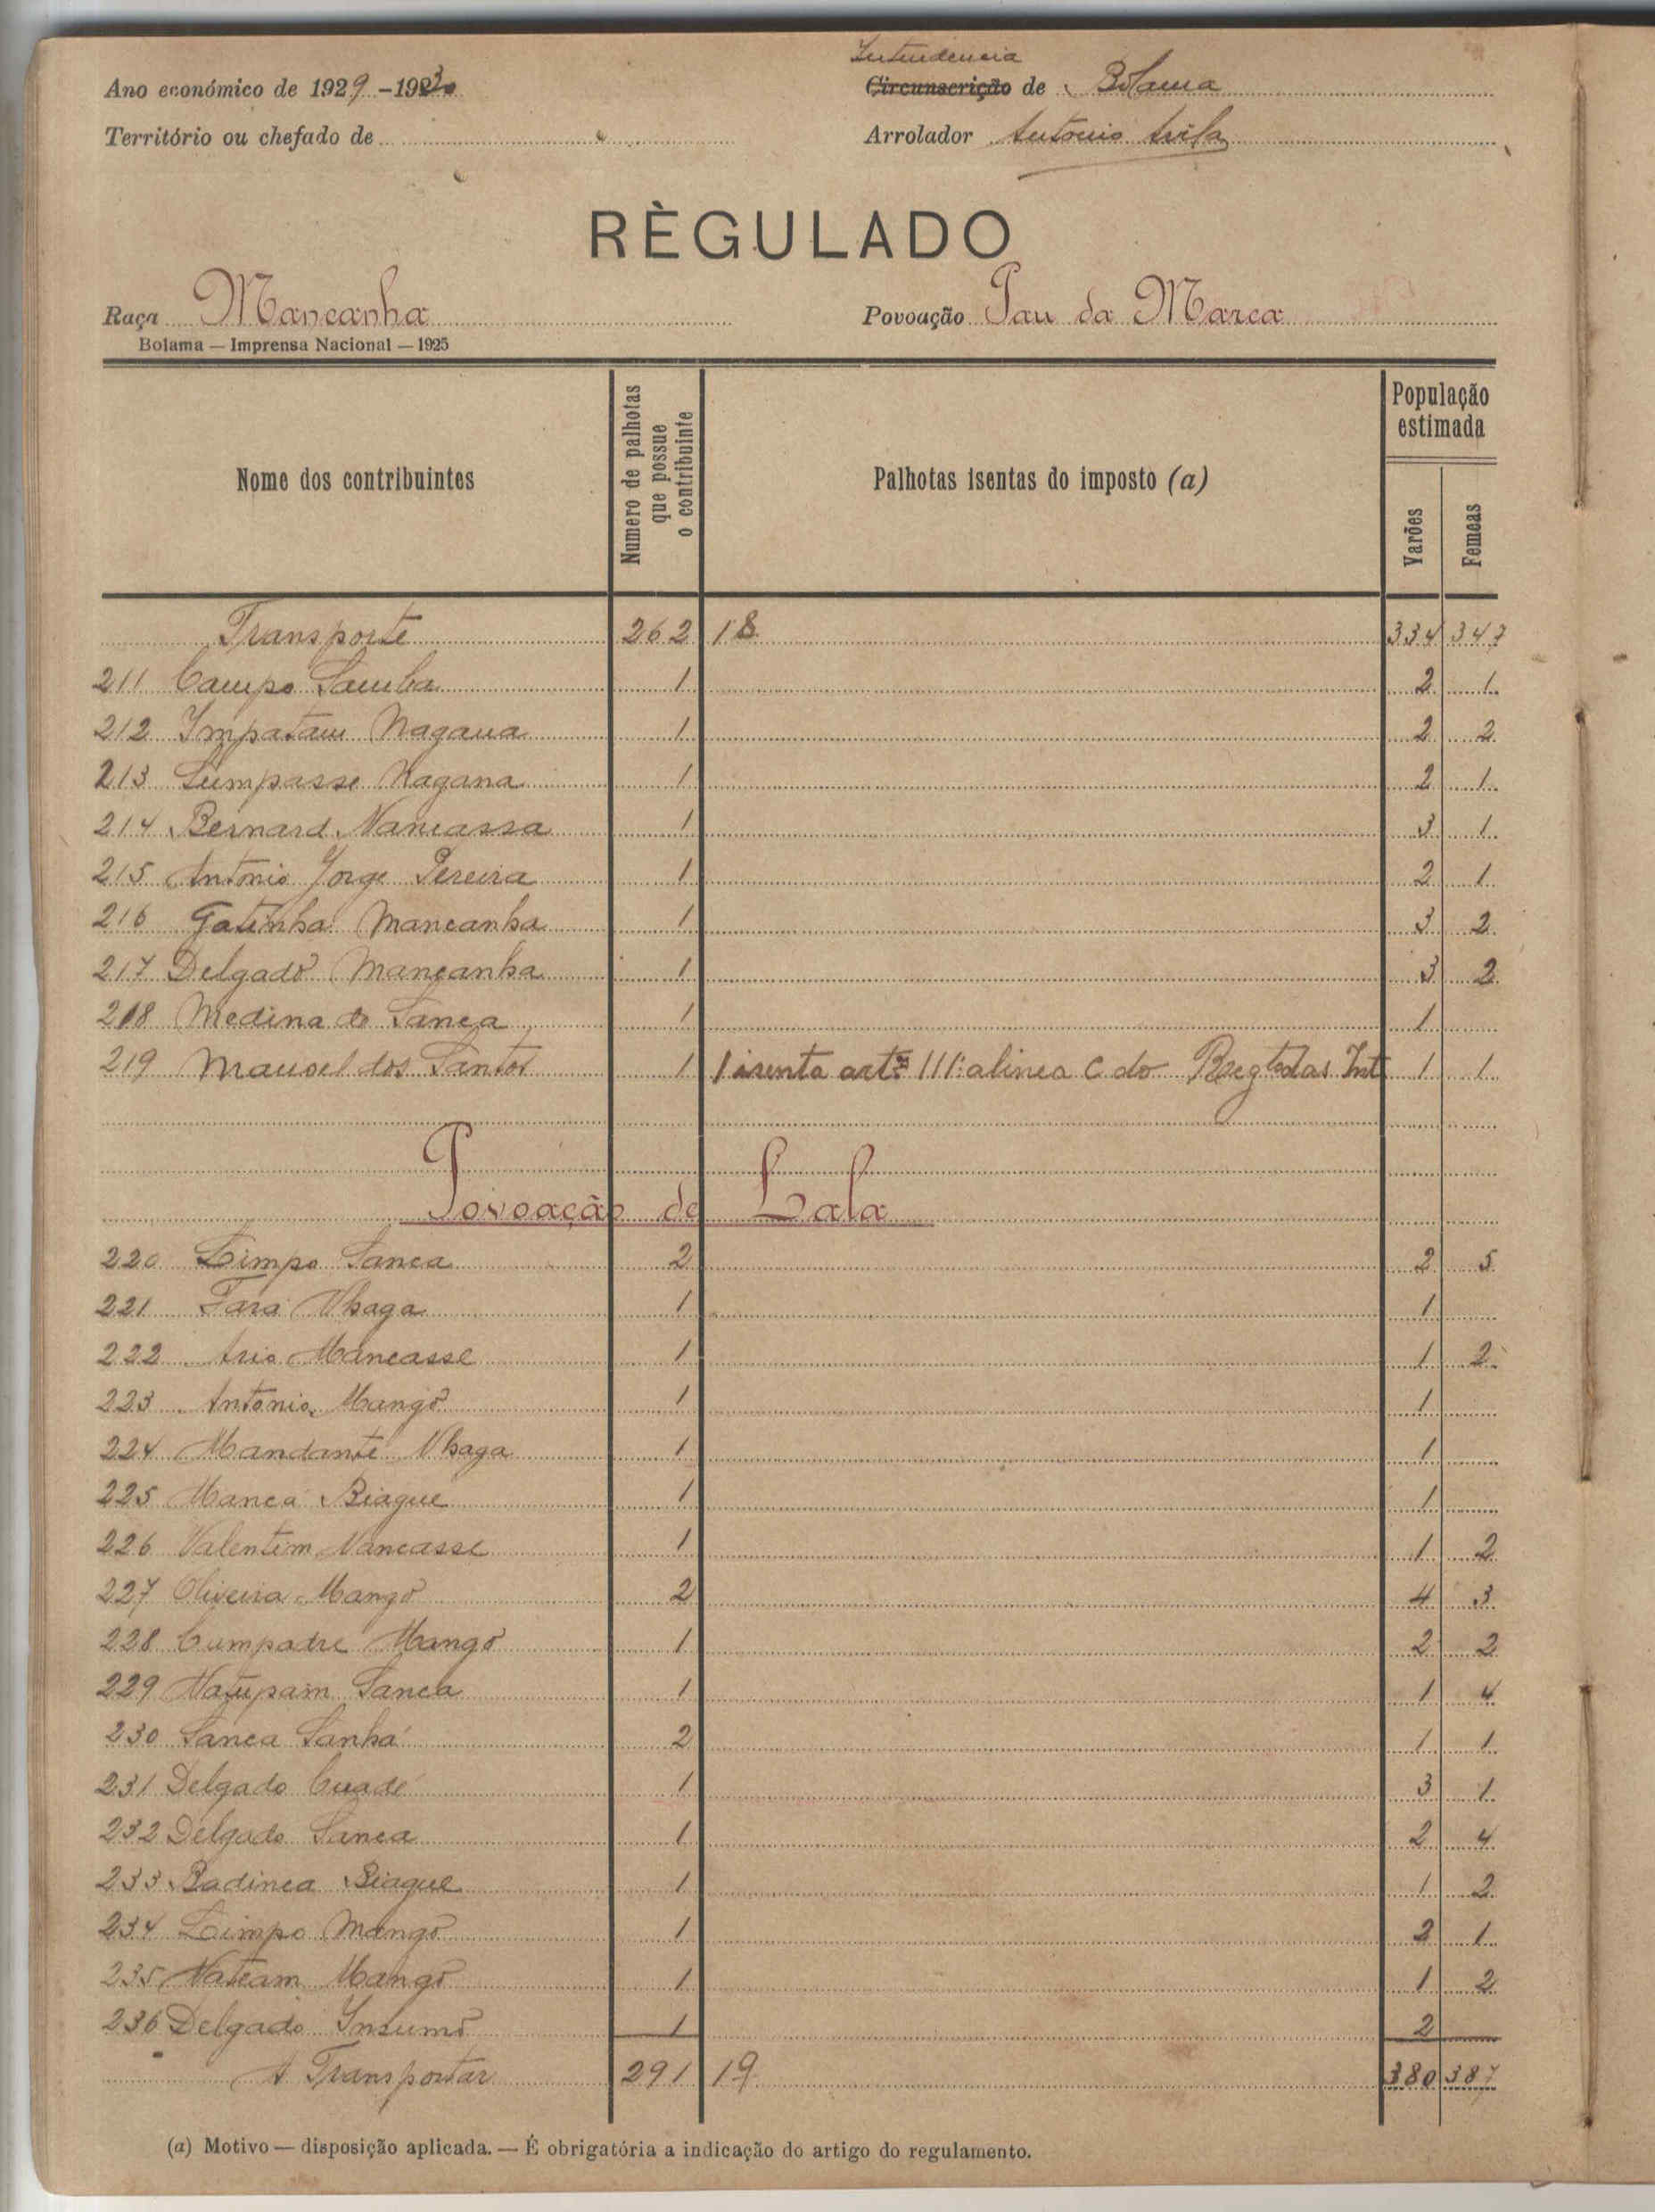 Intendencia
Ano económico de 1929-1930 Circunscrição de Bolama
Território ou chefado de Arrolador Antonio Avila
RÈGULADO
Raça Mancanha Povoação Pau da Marca
Bolama — Imprensa Nacional — 1925
Nome dos contribuintes Numero de palhotas que possue o contribuinte Palhotas isentas do imposto (a) População estimada Varões Femeas
Transporte 262 18 334 347
211 Campo Samba 1 2 1
212 Impatam Nagana 1 2 2
213 Sumpasse Nagana 1 2 1
214 Bernard Nancassa 1 3 1
215 Antonio Jorge Pereira 1 2 1
216 Gatinha Mancanha 1 3 2
217 Delgado Mancanha 1 3 2
218 Medina de Sanca 1 1
219 Manoel dos Santos 1 1 isenta artº 111º alinea C do Regtodas Int 1 1
Povoação de Lala
220 Limpo Sanca 2 2 5
221 Fara Nhaga 1 1
222 Ario Mancasse 1 1 2
223 Antonio Mangô 1 1
224 Mandante Nhaga 1 1
225 Manca Biague 1 1
226 Valentim Nancasse 1 1 2
227 Oliveira Mangô 2 4 3
228 Cumpadre Mangô 1 2 2
229 Natupam Sanca 1 1 4
230 Sanca Sanhá 2 1 1
231 Delgado Cuadé 1 3 1
232 Delgado Sanca 1 2 4
233 Badinca Biague 1 1 2
234 Limpo Mangô 1 2 1
235 Nateam Mangô 1 1 2
236 Delgado Insumô 1 2
A Transportar 291 19 380 387
(a) Motivo — disposição aplicada. — É obrigatória a indicação do artigo do regulamento.